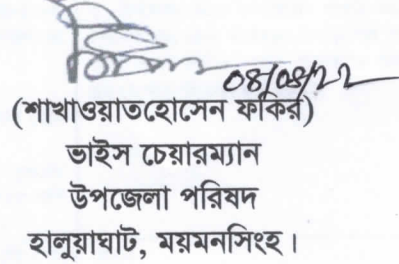 ০৪/০৪/২২
(শাখাওয়াতহোসেন ফকির)
ভাইস চেয়ারম্যান
উপজেলা পরিষদ
হালুয়াঘাট, ময়মনসিংহ।